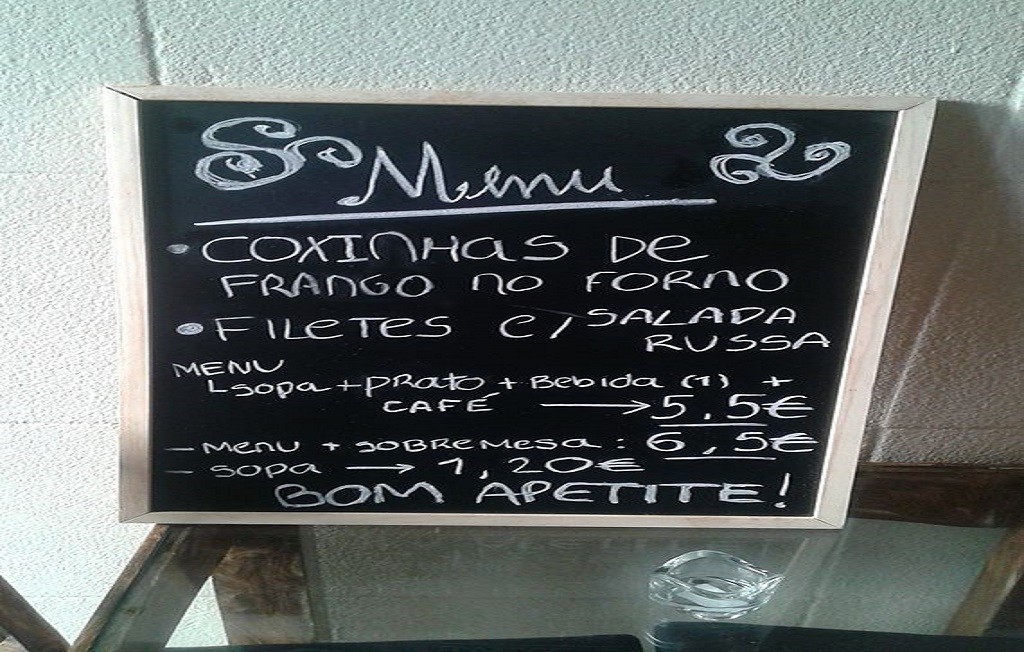 Menu
• COXINHAS DE
FRANGO NO FORNO
• FILETES C/ SALADA
RUSSA
MENU
SOPA + PRATO + BEBIDA (1) +
CAFÉ → 5,5€
- MENU + SOBREMESA: 6,5€
- SOPA → 1,20€
BOM APETITE!